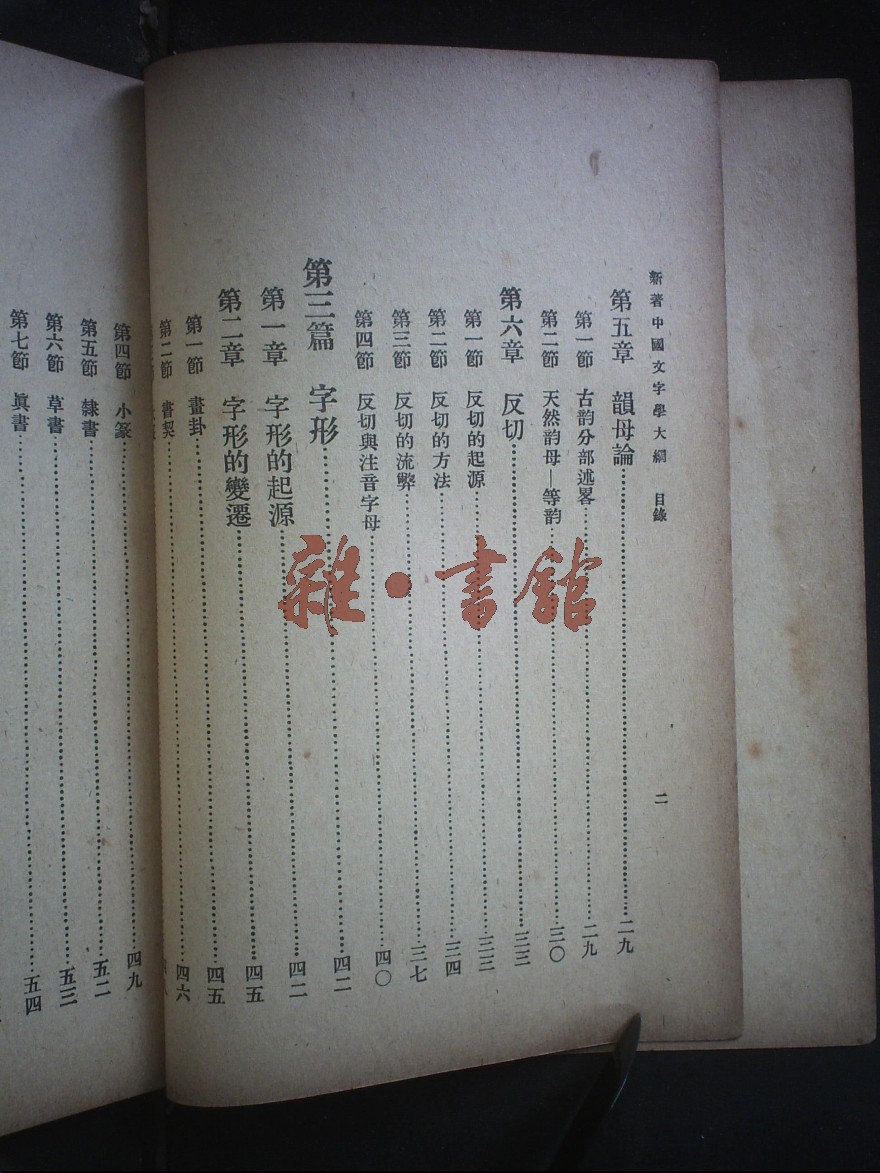 新著中國文字學大綱 目錄
二
第五章 韻母論 二九
第一節 古韵分部述畧 二九
第二節 天然韵母—等韵 三〇
第六章 反切 三三
第一節 反切的起源 三三
第二節 反切的方法 三四
第三節 反切的流弊 三七
第四節 反切與注音字母 四〇
第三篇 字形 四二
第一章 字形的起源 四二
第二章 字形的變遷 四五
第一節 畫卦 四五
第二節 書契 四六
第四節 小篆 四九
第五節 隸書 五二
第六節 草書 五三
第七節 眞書 五四
雜·書館